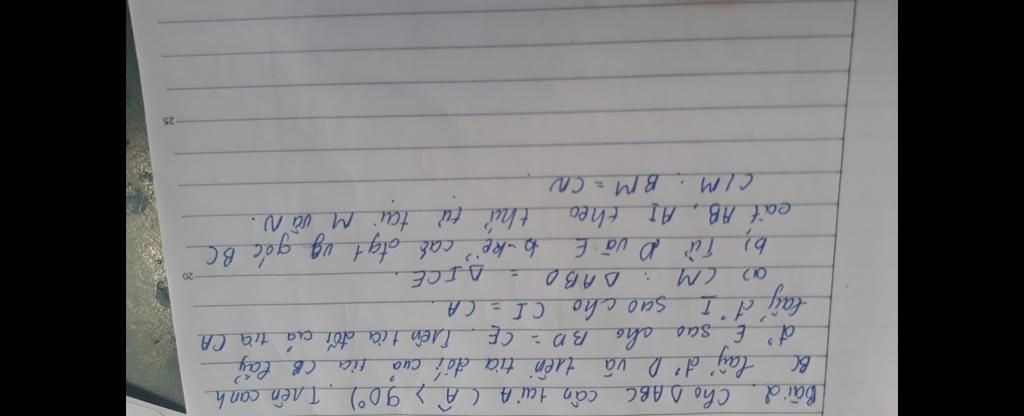 Bài 2. Cho ΔABC cân tại A (Â > 90°). Trên cạnh
BC lấy đ' D và trên tia đối của tia CB lấy
đ' E sao cho BD = CE. Trên tia đối của tia CA
lấy đ' I sao cho CI = CA.
a) CM: ΔABD = ΔICE.
20
b) Từ D và E kẻ các đtgt vg góc BC
cắt AB, AI theo thứ tự tại M và N.
C/M: BM = CN
25